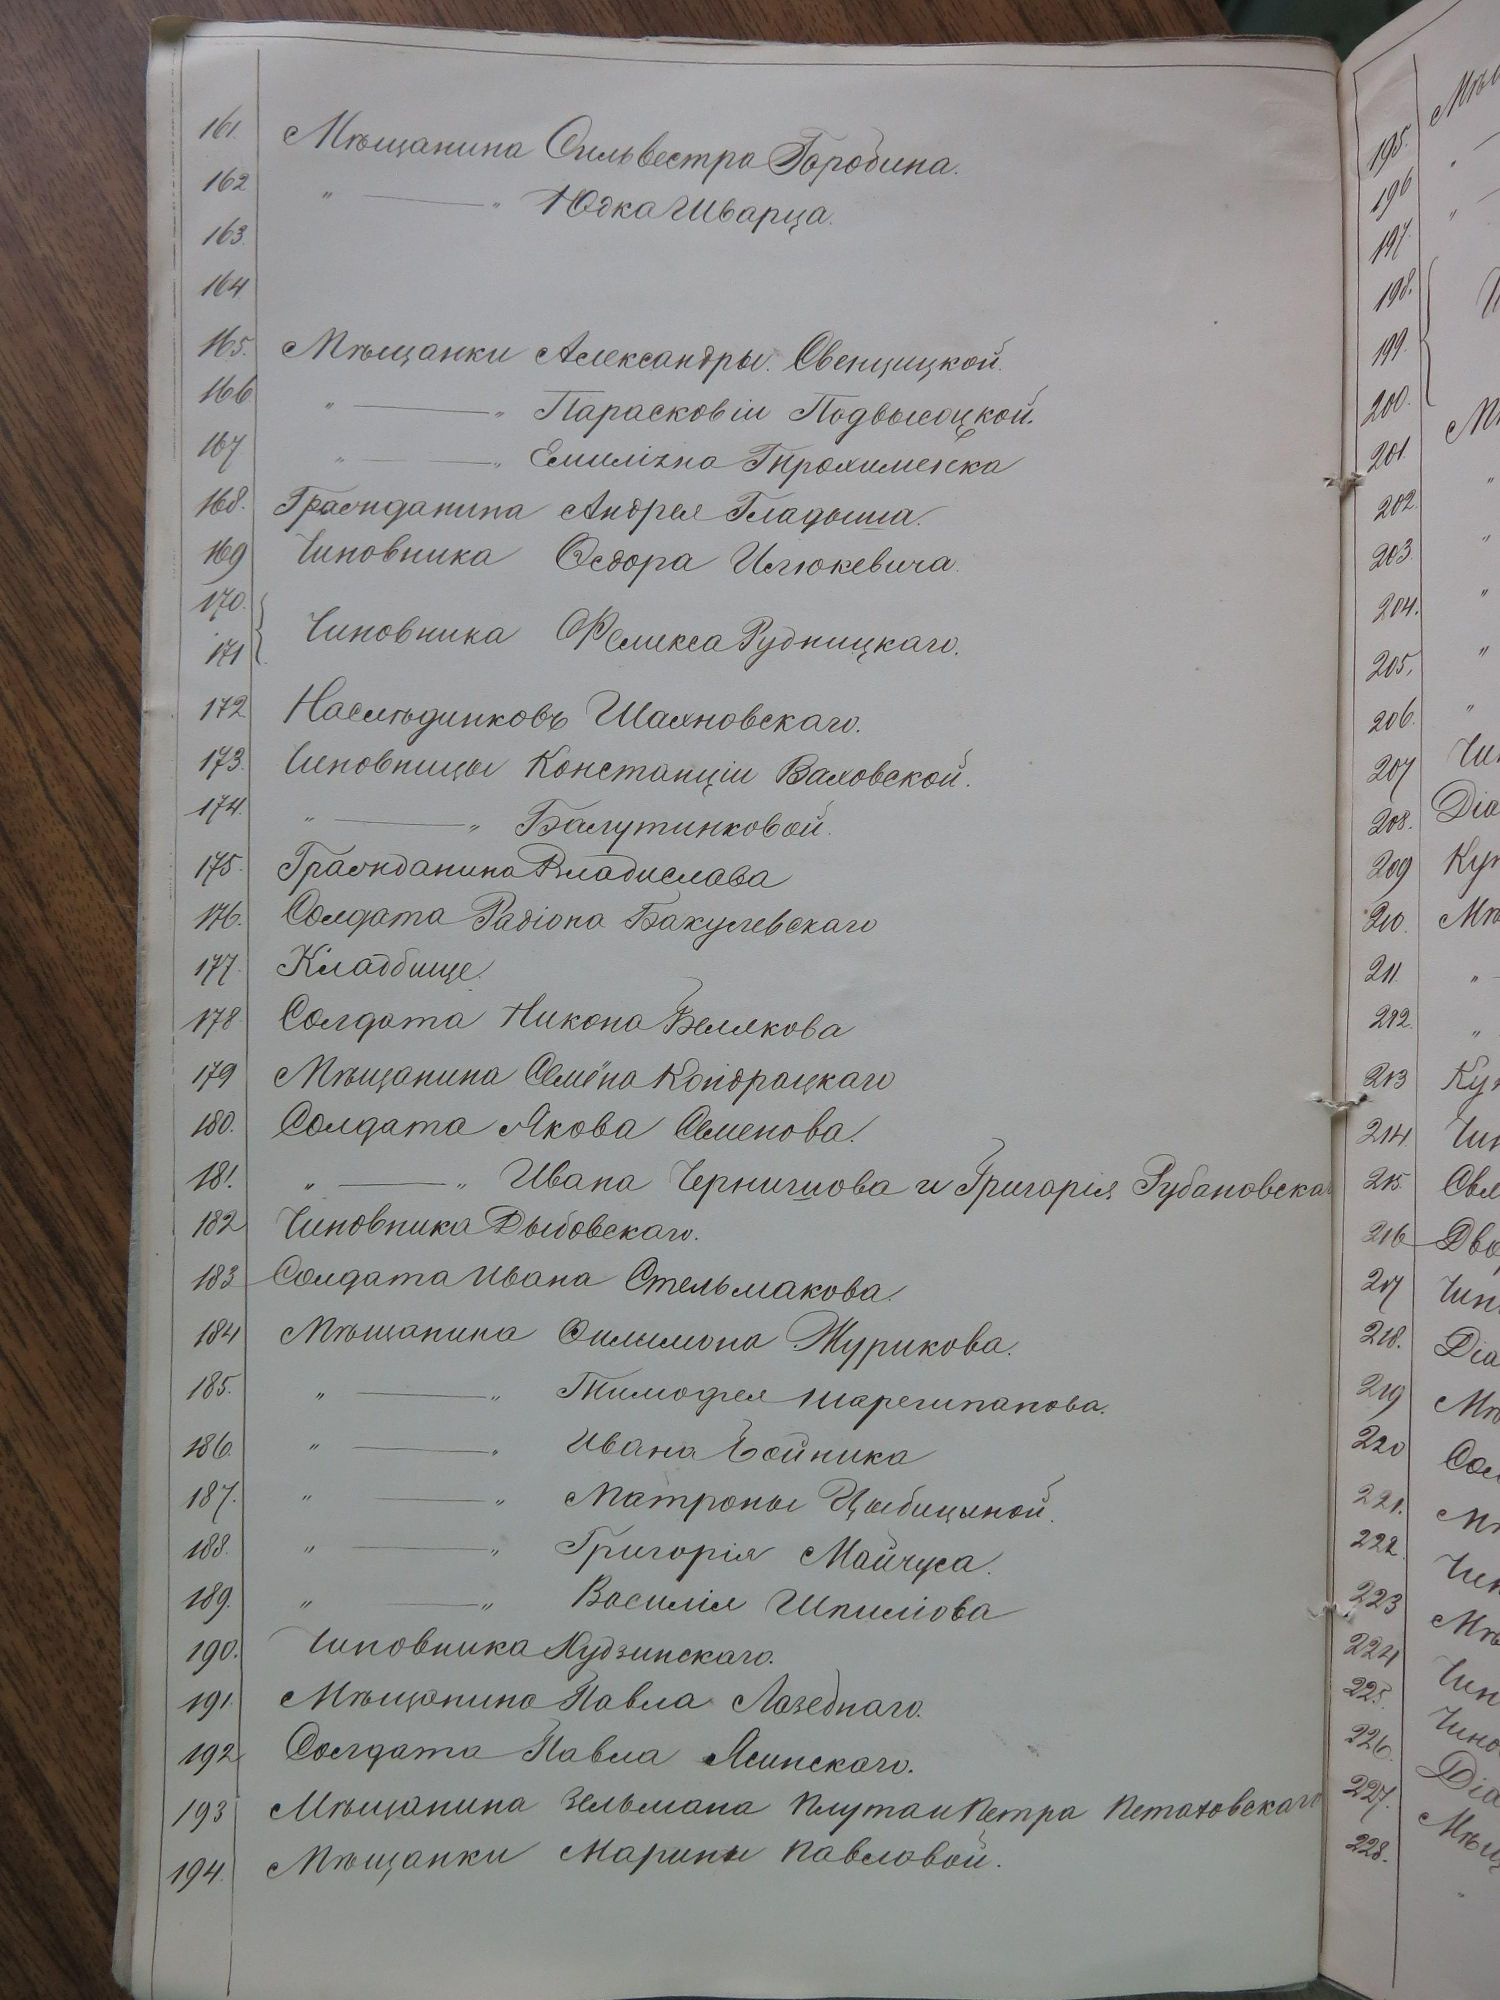 161. Мѣщанина Сильвестра Горобина.
162 " — " Юдка Шварца.
163.
164
165. Мѣщанки Александры Свенцицкой.
166 " — " Парасковіи Подвысоцкой.
167 " — " Трохименка
168. Гражданина Андрея Гладыша.
169 Чиновника Ѳедора Илюкевича.
170.
171 Чиновника Феликса Рудницкаго.
172 Наслѣдниковъ Шахновскаго.
173. Чиновницы Констанціи Ваховской.
174. " — " Балутинковой.
175. Гражданина Владислава
176. Солдата Радіона Бакулевскаго
177. Кладбище.
178 Солдата Никона Белякова
179 Мѣщанина Семёна Кондрацкаго
180. Солдата Якова Семенова.
181. " — " Ивана Чернишова и Григорія Рубановска
182 Чиновника Дыбовскаго.
183 Солдата Ивана Стельмакова.
184 Мѣщанина Филимона Журикова.
185. " — " Тимофея
186. " — " Ивана
187. " — " Матроны Цыбицыной.
188. " — " Григорія Майчуса.
189. " — " Василія Шпиліова
190. Чиновника Кудзинскаго.
191. Мѣщанина Павла Лазебнаго.
192 Солдата Павла Ясинскаго.
193 Мѣщанина Зельмана Плута и Петра Петаховскаго
194. Мѣщанки Марины Павловой.
195.
196
197.
198.
199.
200.
201.
202.
203.
204.
205.
206.
207
208.
209
210.
211
212.
213
214.
215.
216
217
218.
219
220
221.
222.
223
224
225.
226.
227.
228.